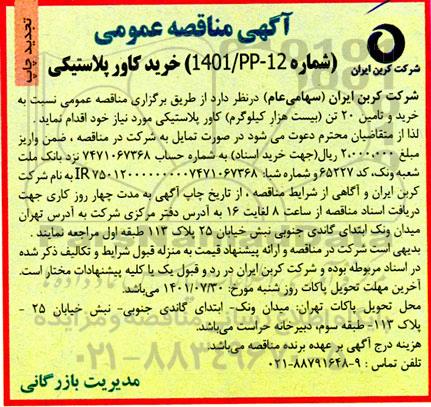 تجدید چاپ
آگهی مناقصه عمومی
(شماره 1401/PP-12) خرید کاور پلاستیکی
شرکت کربن ایران
شرکت کربن ایران (سهامی‌عام) درنظر دارد از طریق برگزاری مناقصه عمومی نسبت به
خرید و تامین ۲۰ تن (بیست هزار کیلوگرم) کاور پلاستیکی مورد نیاز خود اقدام نماید.
لذا از متقاضیان محترم دعوت می شود در صورت تمایل به شرکت در مناقصه ، ضمن واریز
مبلغ ۲۰۰۰۰۰۰ ریال(جهت خرید اسناد) به شماره حساب ۷۴۷۱۰۶۷۳۶۸ نزد بانک ملت
شعبه ونک، کد ۶۵۲۲۷ و شماره شبا: IR ۷۵۰۱۲۰۰۰۰۰۰۰۰۰۷۴۷۱۰۶۷۳۶۸ به نام شرکت
کربن ایران و آگاهی از شرایط مناقصه ، از تاریخ چاپ آگهی به مدت چهار روز کاری جهت
دریافت اسناد مناقصه از ساعت ۸ لغایت ۱۶ به آدرس دفتر مرکزی شرکت به آدرس تهران
میدان ونک ابتدای گاندی جنوبی نبش خیابان ۲۵ پلاک ۱۱۳ طبقه اول مراجعه نمایند .
بدیهی است شرکت در مناقصه و ارائه پیشنهاد قیمت به منزله قبول شرایط و تکالیف ذکر شده
در اسناد مربوطه بوده و شرکت کربن ایران در رد و قبول یک یا کلیه پیشنهادات مختار است.
آخرین مهلت تحویل پاکات روز شنبه مورخ: ۱۴۰۱/۰۷/۳۰ می‌باشد.
محل تحویل پاکات تهران: میدان ونک- ابتدای گاندی جنوبی- نبش خیابان ۲۵ -
پلاک ۱۱۳- طبقه سوم، دبیرخانه حراست می‌باشد.
هزینه درج آگهی بر عهده برنده مناقصه می‌باشد.
تلفن تماس : ۹-۸۸۷۹۱۶۴۸-۰۲۱
مدیریت بازرگانی